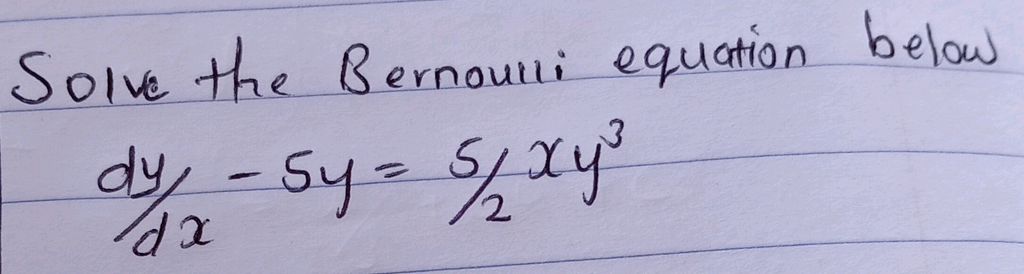 Solve the Bernoulli equation below
dy/dx - 5y = 5/2 xy³